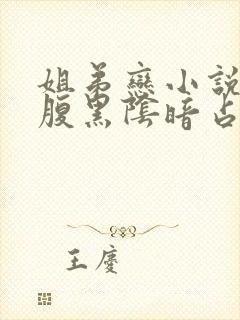 姐弟戀小說
腹黑陰暗占
王慶